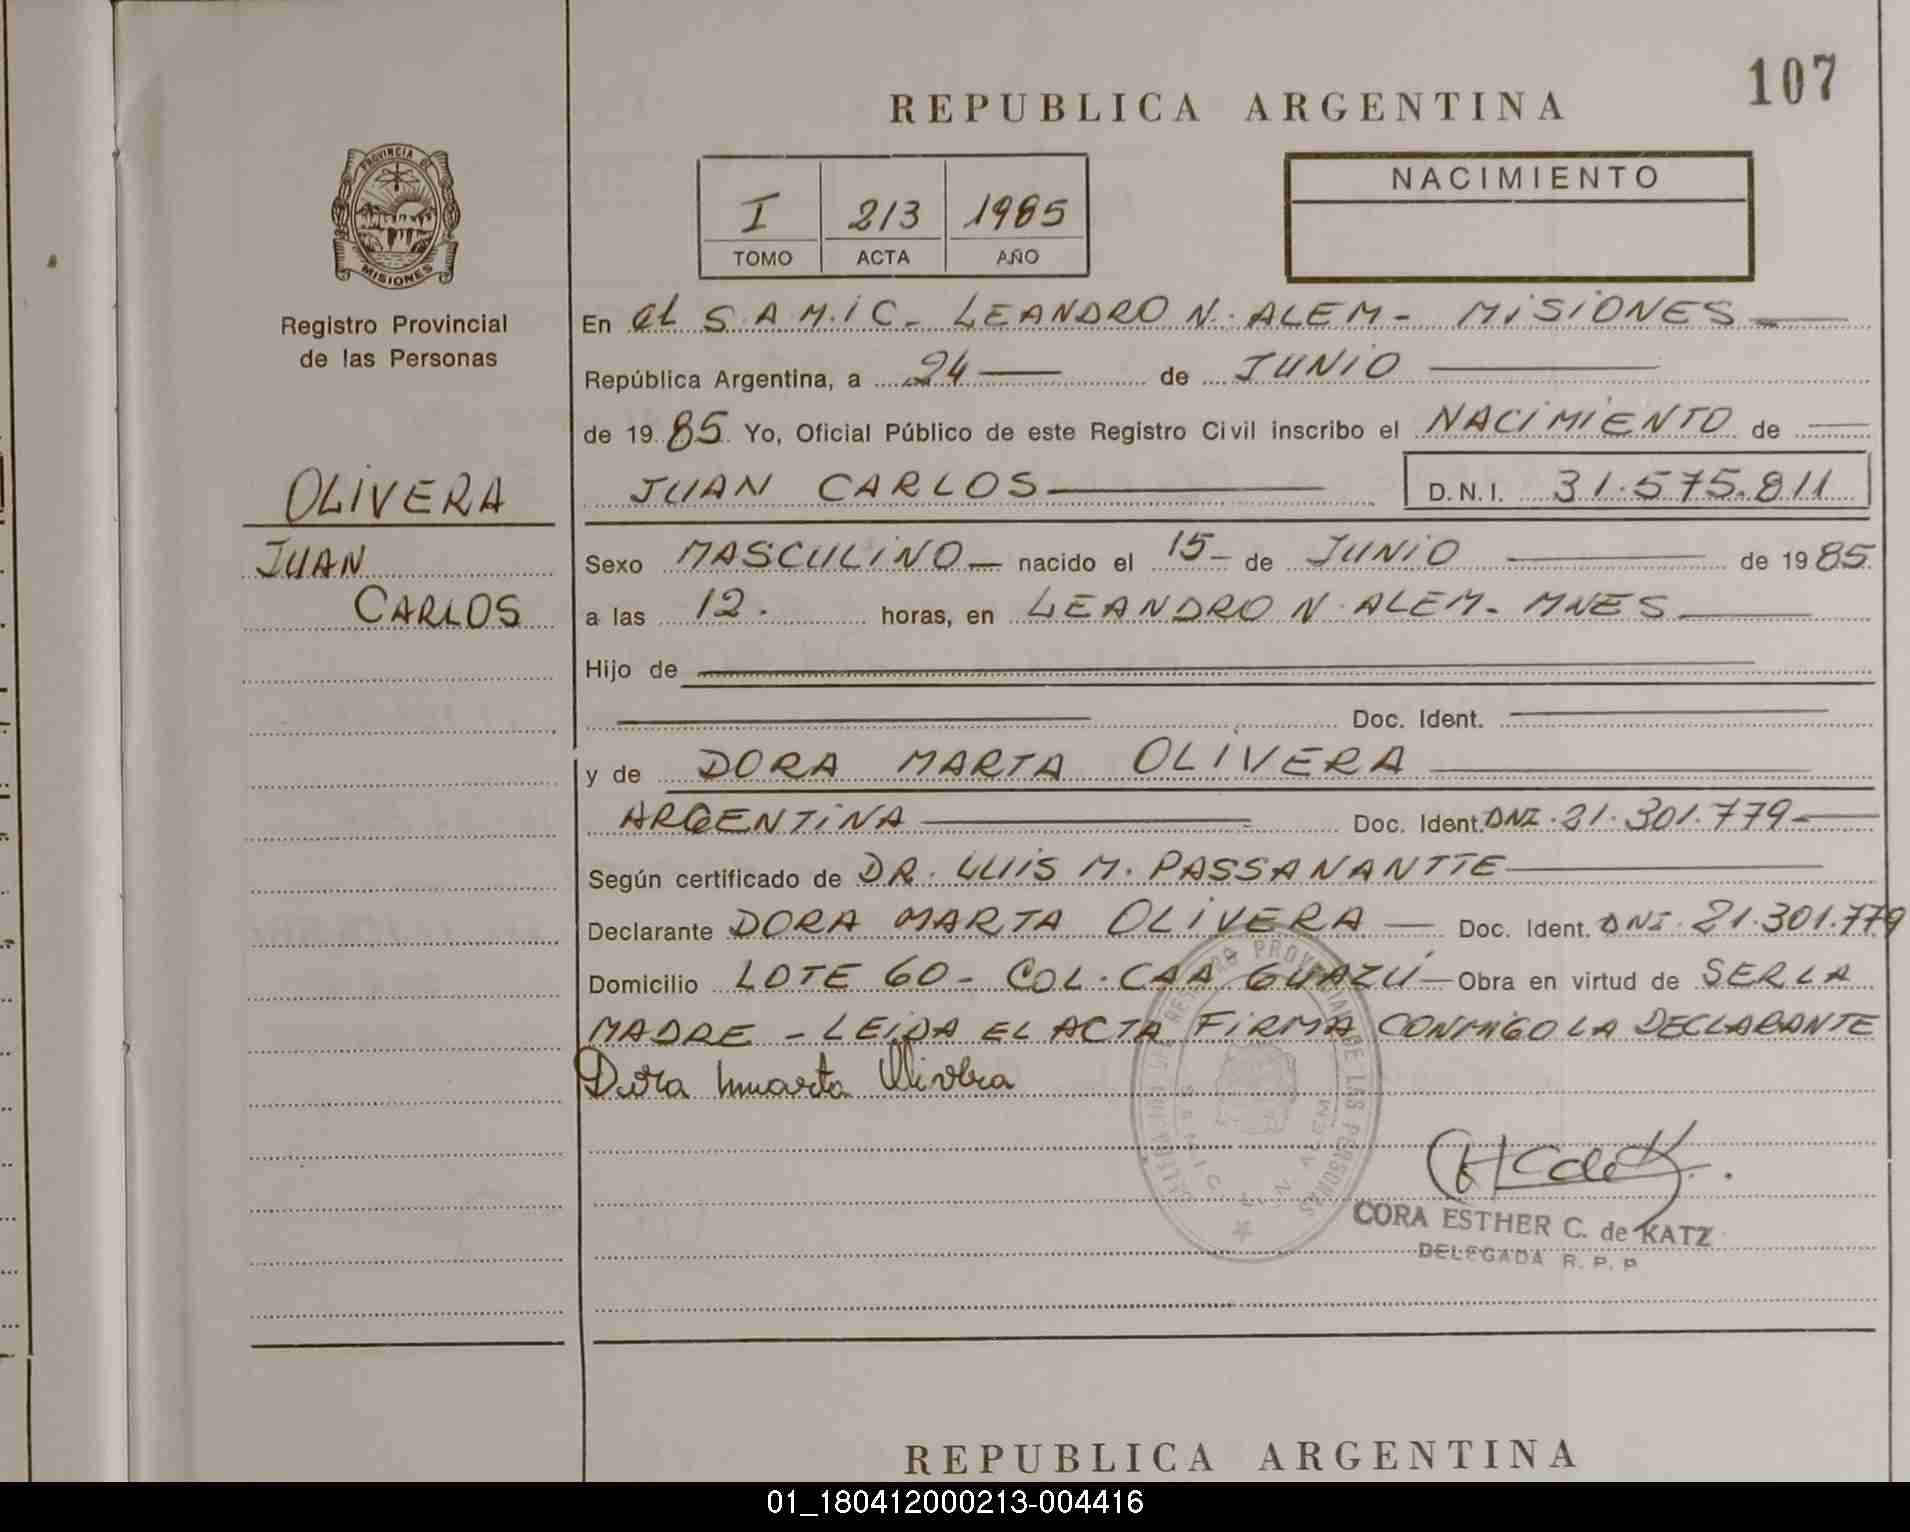 107
REPUBLICA ARGENTINA
PROVINCIA DE
MISIONES
Registro Provincial
de las Personas
OLIVERA
JUAN
CARLOS
I 213 1985
TOMO ACTA AÑO
NACIMIENTO
En el S.A.M.I.C. LEANDRO N. ALEM - MISIONES
República Argentina, a 24 de JUNIO
de 1985 Yo, Oficial Público de este Registro Civil inscribo el NACIMIENTO de
JUAN CARLOS D.N.I. 31.575.811
Sexo MASCULINO nacido el 15 de JUNIO de 1985
a las 12. horas, en LEANDRO N. ALEM - MNES
Hijo de
Doc. Ident.
y de DORA MARTA OLIVERA
ARGENTINA Doc. Ident. DNI. 21.301.779
Según certificado de DR. LUIS M. PASSANANTTE
Declarante DORA MARTA OLIVERA Doc. Ident. DNI. 21.301.779
Domicilio LOTE 60 - COL. CAA GUAZÚ - Obra en virtud de SER LA
MADRE - LEIDA EL ACTA FIRMA CONMIGO LA DECLARANTE
Dora Marta Olivera
REGISTRO PROVINCIAL DE LAS PERSONAS
CORA ESTHER C. de KATZ
DELEGADA R. P. P
REPUBLICA ARGENTINA
01_180412000213-004416